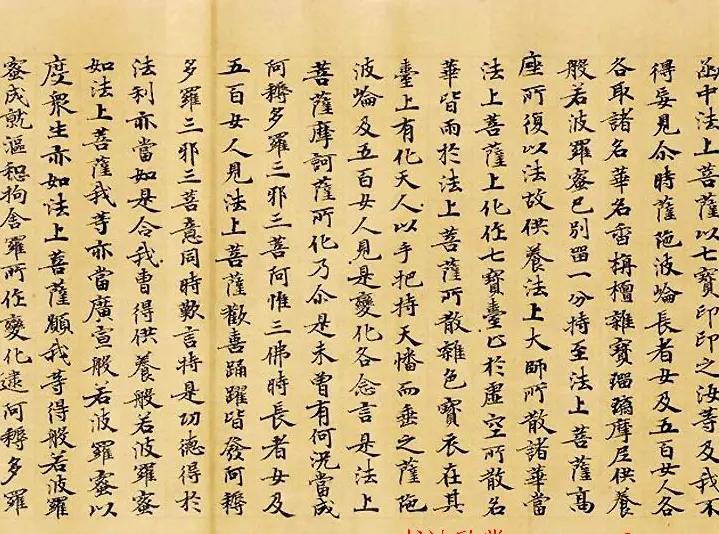 函中法上菩薩以七寶印印之汝等及我不
得妄見尒時薩陁波崘長者女及五百女人各
各取諸名華名香栴檀雜寶瑠璃摩尼供養
般若波羅蜜已別留一分持至法上菩薩高
座所復以法故供養法上大師所散諸華當
法上菩薩上化作七寶臺止於虛空所散名
華皆雨於法上菩薩所散雜色寶衣在其
臺上有化天人以手把持天幡而垂之薩陁
波崘及五百女人見是變化各念言是法上
菩薩摩訶薩所化乃尒是未曾有何況當成
阿耨多羅三邪三菩阿惟三佛時長者女及
五百女人見法上菩薩歡喜踊躍皆發阿耨
多羅三邪三菩意同時歎言持是功德得於
法利亦當如是令我曹得供養般若波羅蜜
如法上菩薩我等亦當廣宣般若波羅蜜以
度衆生亦如法上菩薩願我等得般若波羅
蜜成就漚惒拘舍羅所作變化逮阿耨多羅